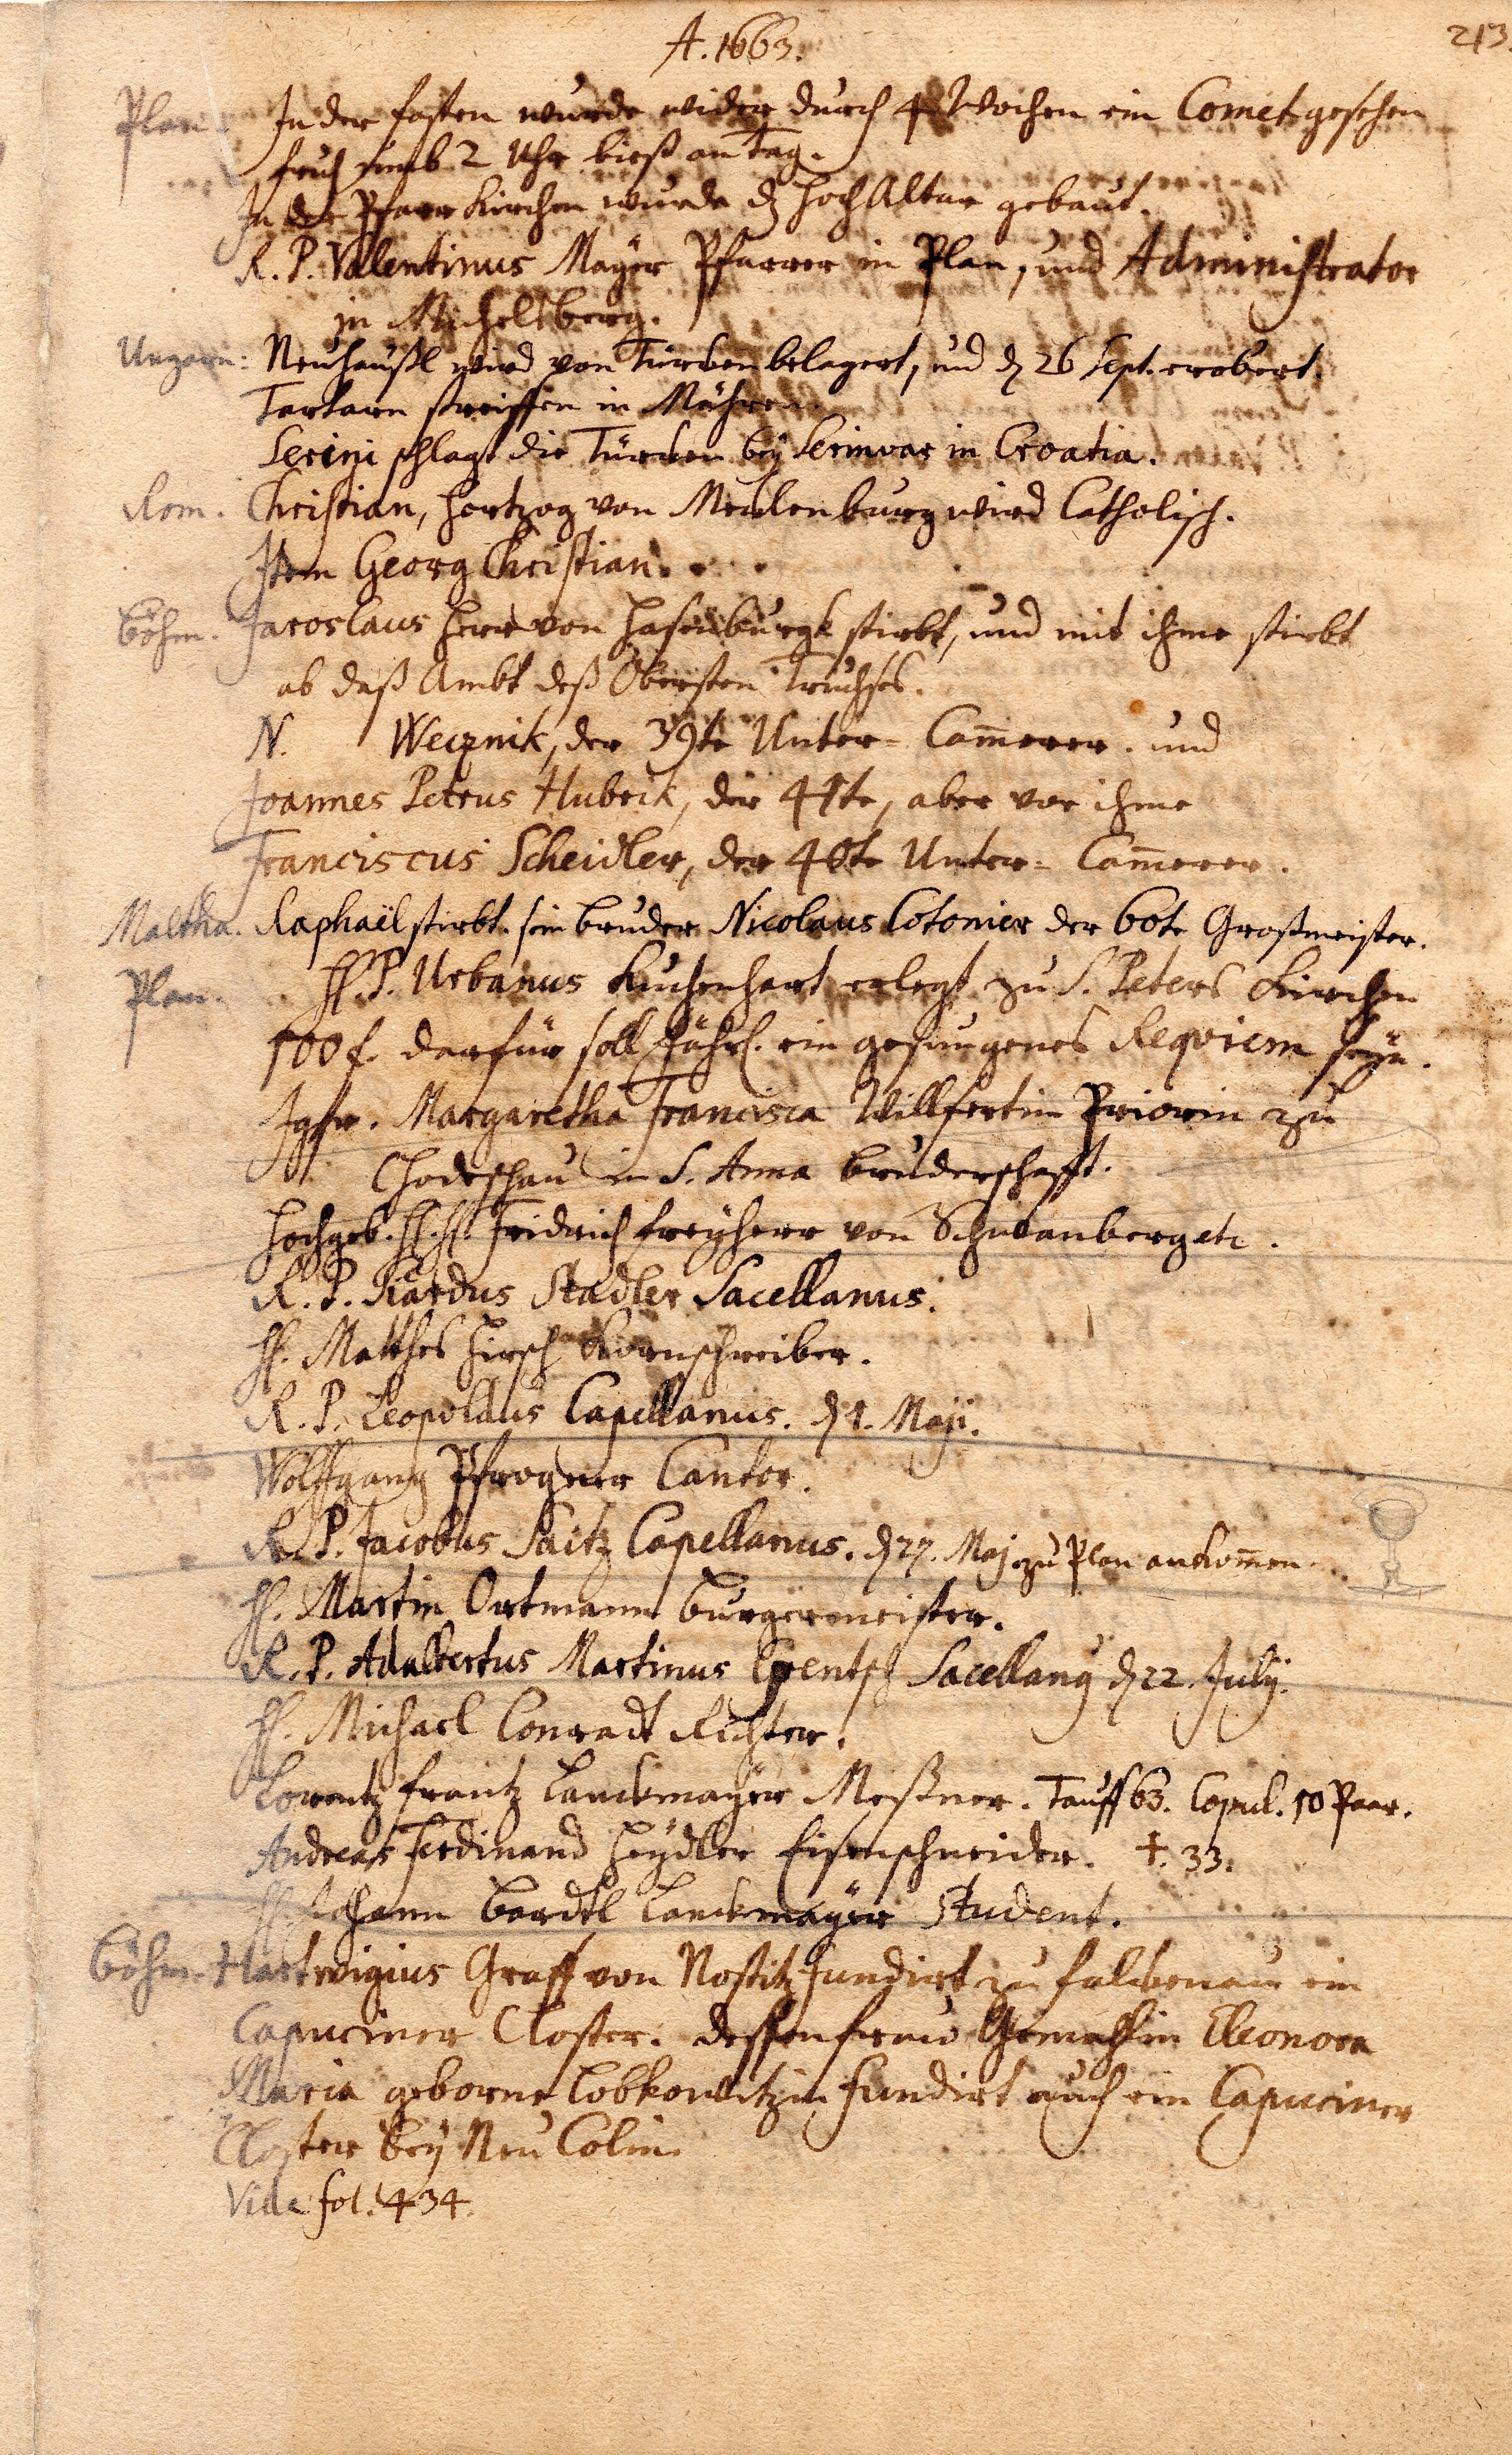 213.
A. 1663.
Plan. In der fasten wurde wider durch 4 Wochen ein Comet gesehen
fruh umb 2 Uhr bieß an Tag.
In der Pfarr Kirchen wurde d. HochAltar gebaut.
R. P. Valentinus Mayer Pfarrer in Plan, und Administrator
in Michelsberg.
Ungarn: Neuhäußl wird von Türcken belagert, und d. 26 Sept. erobert.
Tartarn streiffen in Mähren.
Serini schlagt die Türcken bey Serinvar in Croatia.
Rom. Christian, Hertzog von Mecklenburg wird Catholisch.
Item Georg Christian. . .
Böhm. Jaroslaus Herr von Hasenburgk stirbt, und mit ihme stirbt
ab daß Ambt deß Obersten Truchses.
N. Wecznik, der 39te Unter= Cam̄erer. und
Joannes Petrus Hubrik, der 41te, aber vor ihme
Franciscus Scheidler, der 40te Unter= Cam̄erer.
Maltha. Raphaël stirbt. sein bruder Nicolaus Cotonier der 60te Großmeister.
Plan. H. P. Urbanus Kuchenhart erlegt zu S. Peters Kirchen
100 f. darfür soll Jährl. ein gesungenes Reqviem seyn.
Jgfr. Margaretha Francisca Willfertin Priorin zu
Chodeschau in S. Anna bruderschafft.
Hochgeb. H. H. Fridrich freyherr von Schwanberg etc.
R. P. Stadler Sacellanus.
H. Matthes Hirsch Kornschreiber.
R. P. Leopoldus Capellanus. d. 1. Maji.
Wolffgang Pfrogner Cantor.
R. P. Jacobus Saitz Capellanus. d. 27. Maj zu Plan ankom̄en.
H. Martin Ortmann burgermeister.
R. P. Adalbertus Martinus Sacellang d. 22. July.
H. Michael Conradt Richter.
Lorentz frantz Lanckmayer Meßner. Tauff 63. Copul. 10 Paar.
Andreas Ferdinand Heydler Eisenschneider. †. 33.
H. Johann Bardtl Lanckmayer Student.
Böhm. Hartwigius Graff von Nostitz fundirt zu falckenau ein
Capuciner Closter. dessen frau Gemahlin Eleonora
Maria geborne Lobkowitzin fundirt auch ein Capuciner
Closter bey Neu Colin.
Vide fol. 434.